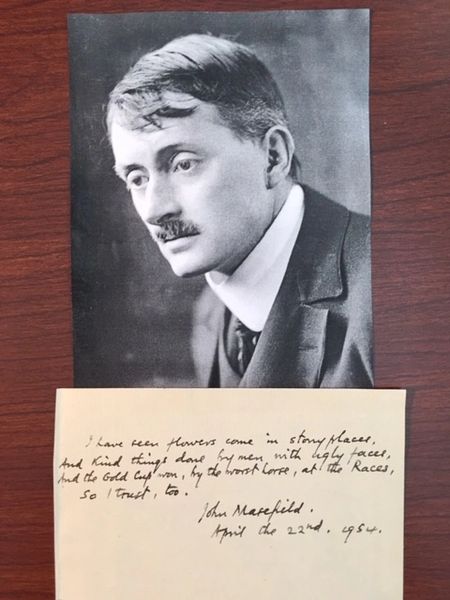 I have seen flowers come in stony places,
And kind things done by men with ugly faces,
And the Gold Cup won, by the worst horse, at the Races,
So I trust, too.
John Masefield.
April the 22nd. 1954.